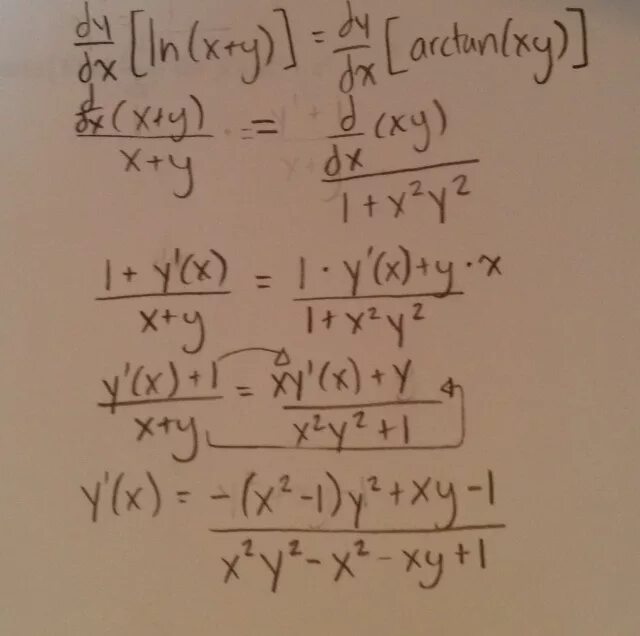 dy/dx [ln(x+y)] = dy/dx [arctan(xy)]
d/dx (x+y) / x+y = d/dx (xy) / 1 + x²y²
1 + y'(x) / x+y = 1 · y'(x) + y · x / 1 + x²y²
y'(x) + 1 / x+y = xy'(x) + y / x²y² + 1
y'(x) = -(x² -1)y² + xy - 1 / x²y² - x² - xy + 1